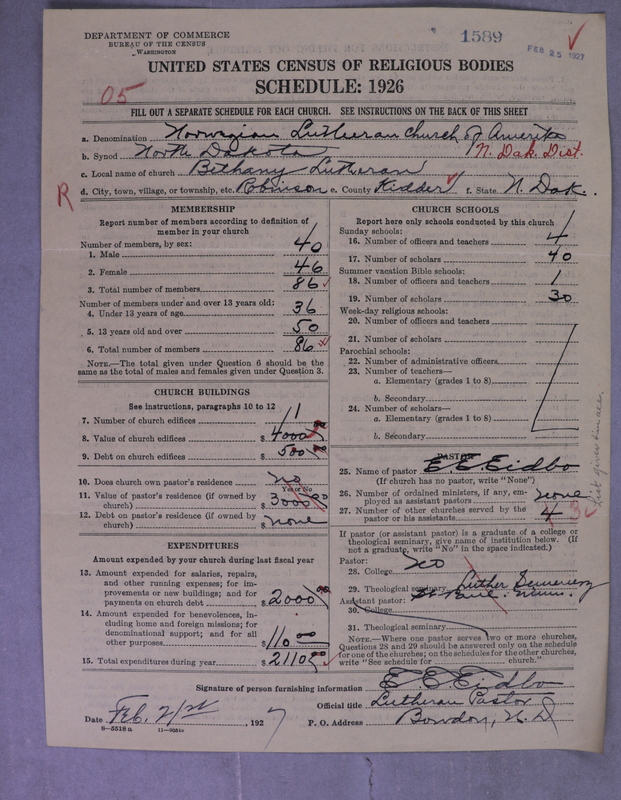 DEPARTMENT OF COMMERCE
BUREAU OF THE CENSUS
WASHINGTON
1589
FEB 25 1927
UNITED STATES CENSUS OF RELIGIOUS BODIES
SCHEDULE: 1926
05
FILL OUT A SEPARATE SCHEDULE FOR EACH CHURCH. SEE INSTRUCTIONS ON THE BACK OF THIS SHEET
a. Denomination Norwegian Lutheran Church of Amerika
b. Synod North Dakota N. Dak. Dist.
c. Local name of church Bethany Lutheran
R
d. City, town, village, or township, etc. Robinson e. County Kidder f. State N. Dak.
MEMBERSHIP
Report number of members according to definition of member in your church
Number of members, by sex:
1. Male 40
2. Female 46
3. Total number of members 86
Number of members under and over 13 years old:
4. Under 13 years of age 36
5. 13 years old and over 50
6. Total number of members 86
NOTE.—The total given under Question 6 should be the
same as the total of males and females given under Question 3.
CHURCH BUILDINGS
See instructions, paragraphs 10 to 12
7. Number of church edifices 1
8. Value of church edifices $ 4000
9. Debt on church edifices $ 500
10. Does church own pastor's residence no
Yes or No
11. Value of pastor's residence (if owned by
church) $ 3000
12. Debt on pastor's residence (if owned by
church) $ none
EXPENDITURES
Amount expended by your church during last fiscal year
13. Amount expended for salaries, repairs,
and other running expenses; for im-
provements or new buildings; and for
payments on church debt $ 2000 00
14. Amount expended for benevolences, in-
cluding home and foreign missions; for
denominational support; and for all
other purposes $ 110 00
15. Total expenditures during year $ 2110 00
CHURCH SCHOOLS
Report here only schools conducted by this church
Sunday schools:
16. Number of officers and teachers 4
17. Number of scholars 40
Summer vacation Bible schools:
18. Number of officers and teachers 1
19. Number of scholars 30
Week-day religious schools:
20. Number of officers and teachers
21. Number of scholars
Parochial schools:
22. Number of administrative officers
23. Number of teachers—
a. Elementary (grades 1 to 8)
b. Secondary
24. Number of scholars—
a. Elementary (grades 1 to 8)
b. Secondary
PASTOR
25. Name of pastor E. E. Eidbo
(If church has no pastor, write "None")
26. Number of ordained ministers, if any, em-
ployed as assistant pastors none
27. Number of other churches served by the
pastor or his assistants 4
If pastor (or assistant pastor) is a graduate of a college or
theological seminary, give name of institution below. (If
not a graduate, write "No" in the space indicated.)
Pastor:
28. College
29. Theological seminary Luther Seminary
St Paul Minn.
Assistant pastor:
30. College
31. Theological seminary
NOTE.—Where one pastor serves two or more churches,
Questions 28 and 29 should be answered only on the schedule
for one of the churches; on the schedules for the other churches,
write "See schedule for church."
Signature of person furnishing information E. E. Eidbo
Official title Lutheran Pastor
Date Feb. 21st, 1927
P. O. Address Bowdon, N. D
8—5518a